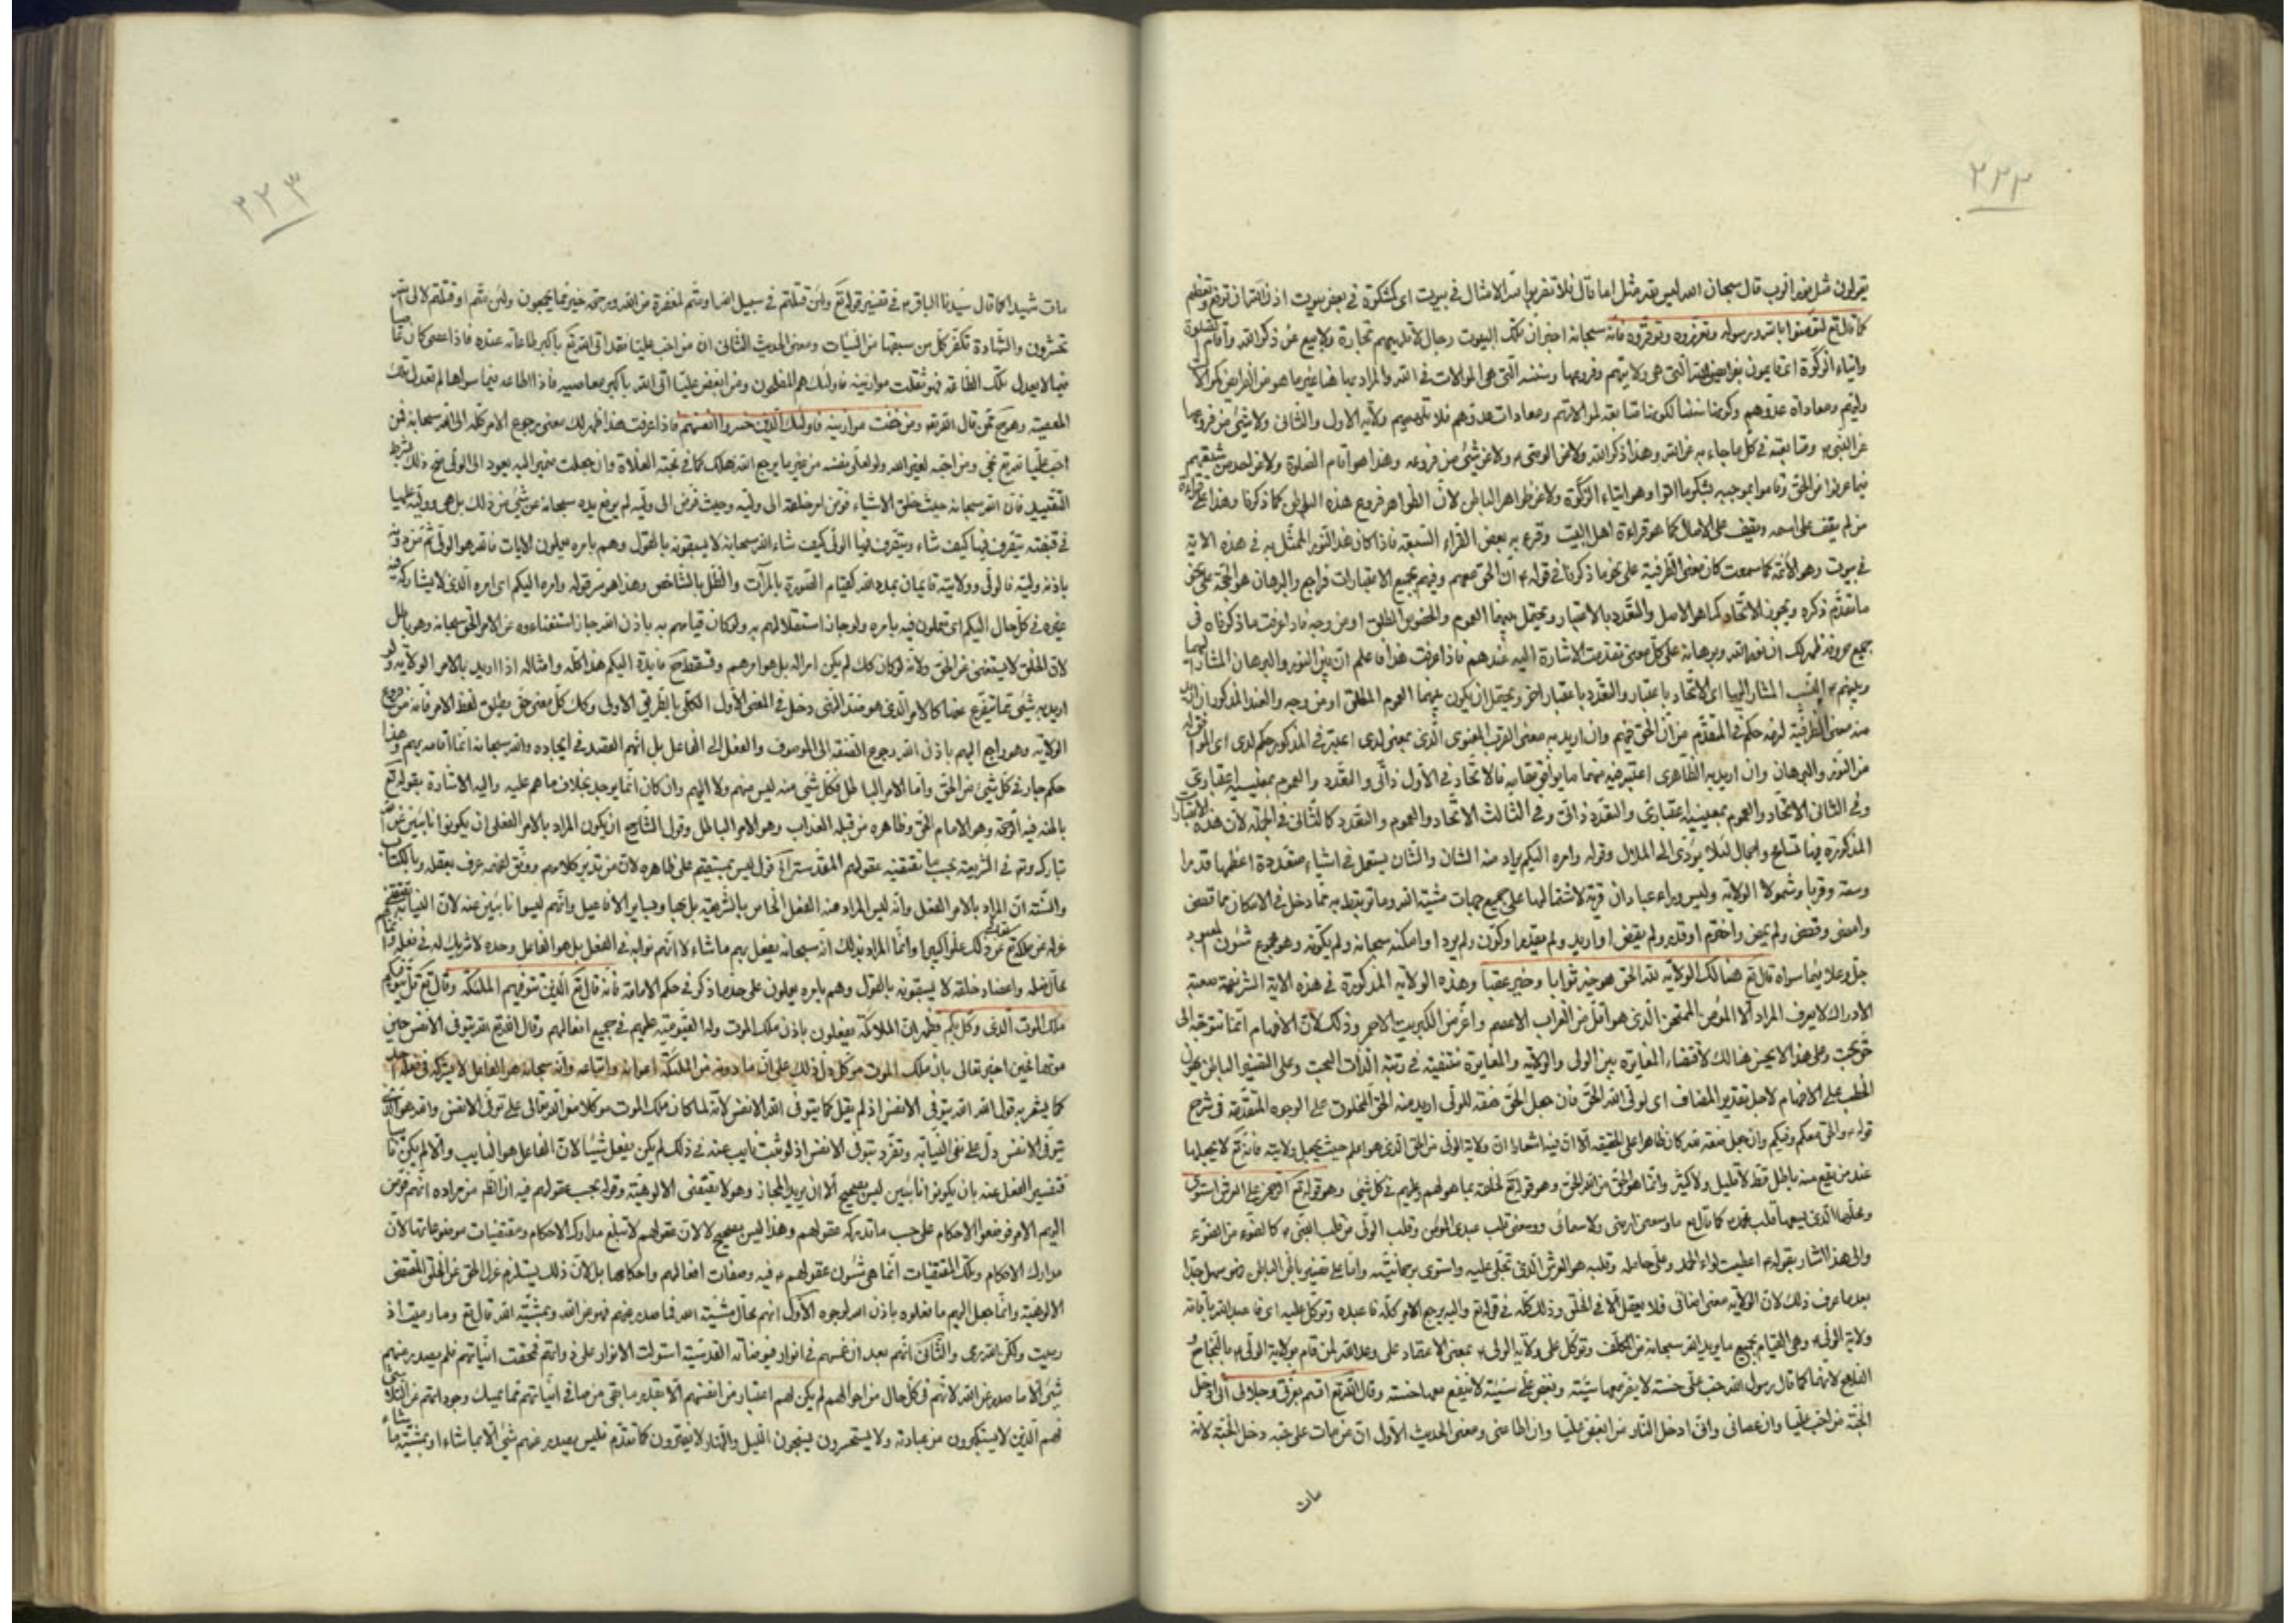 ٢٢٢
يقولون مثل نور الرب قال سبحان الله ليس لله مثل اما قال فلا تضربوا لله الامثال في بيوت اى كمشكوة في بعض بيوت اذن الله ان ترفع وتعظيم
كما قال تع لتؤمنوا بالله ورسوله وتعزروه وتوقروه فانه سبحانه اخبر ان تلك البيوت رجال لا تلهيهم تجارة ولا بيع عن ذكر الله واقام الصلوة
وايتاء الزكوة اى قايمون بفرايض الله التى هى ولايتهم وفروعها وسننه التى هى الموالات في الله والمراد بها هنا غير ما هو من الفرايض كموالاة
وليهم ومعاداة عدوهم وكونها سننا لكونها متابعة لموالاتهم ومعادات عدوهم فلا تلهيهم ولاية الاول والثانى ولا شئ من فروعها
عن النبى ومتابعته في كل ما جاء به عن الله وهذا ذكر الله ولا عن الوصى ولا عن شئ من فروعه وهذا هو اقام الصلوة ولا عن احد من شيعتهم
فيما عرفوا من الحق وقاموا بموجبه وهو ايتاء الزكوة ولا عن ظواهر الباطن لان الظواهر فروع هذه البواطن كما ذكرنا وهذا على قراءة
من لم يقف على اسمه ويقف على الاصال كما هو قراءة اهل البيت وقرء به بعض القراء السبعة فاذا كان هذا النور الممثل به في هذه الاية
في بيوت وهو الائمة كما سمعت كان معنى الظرفية على نحو ما ذكرنا في قوله ان الحق معهم وفيهم بجميع الاعتبارات فراجع والبرهان هو الحجة على نحو
ما تقدم ذكره ويجوز الاتحاد كما هو الاصل والتعدد بالاعتبار ويحتمل بينهما العموم والخصوص المطلق او من وجه فاذا عرفت ما ذكرناه في
جميع حروفه ظهر لك ان نور الله وبرهانه على كل معنى تقدمت الاشارة اليه عندهم فاذا عرفت هذا فاعلم ان بين النور والبرهان المشار اليهما
وبينهم النسب المشار اليها اى الاتحاد باعتبار والتعدد باعتبار اخر ويحتمل ان يكون بينهما العموم المطلق او من وجه والعند المذكور ان اريد
منه معنى الظرفية لزمه حكم في المتقدم من ان الحق فيهم وان اريد به معنى القرب المعنوى الذى بمعنى لدى اعتبر في المذكور حكم لدى
من النور والبرهان وان اريد به الظاهرى اعتبر فيه منهما ما يوافق مقابه فالاتحاد في الاول ذاتى والتعدد والعموم بمعنييه اعتبارى
وفي الثانى الاتحاد والعموم بمعنييه اعتبارى والتعدد ذاتى وفي الثالث الاتحاد والعموم والتعدد كالثانى في الجملة لان هذه الاعتبارات
المذكورة فيها تسامح واجمال لئلا يؤدى الى الملال وقوله وامره اليكم يراد منه الشان والشان يستعمل في اشياء متعددة اعظمها قدرا
وسعة وقربا وشمولا الولاية وليس وراء عبادان قرية لاشتمالها على جميع جهات مشية الله وما ترتبط به مما دخل في الامكان مما قضى
وامضى وقضى ولم يمض واختم او قدر ولم يقض او اريد ولم يقدر او كون ولم يرد او امكنه سبحانه ولم يكونه وهو جميع شئون المعبود
جل وعلا فيما سواه قال تع هنالك الولاية لله الحق هو خير ثوابا وخير عقبا وهذه الولاية المذكورة في هذه الاية الشريفة صعبة
الادراك لا يعرف المراد الا المؤمن الممتحن الذى هو اقل من الغراب الاعصم واعز من الكبريت الاحمر وذلك لان الافهام انما تتوجه الى
حق بحت وعلى هذا لا يحسن هنالك لاقتضاء المغايرة بين الولى والولاية والمغايرة منتفية في رتبة الذات البحت وعلى التفسير الباطن يهون
الخطب على الافهام لاجل تقدير المضاف اى لولى الله الحق فان جعل الحق صفة للولى اريد منه الحق المخلوق على الوجوه المتقدمة في شرح
قوله والحق معكم وفيكم وان جعل صفة لله كان ظاهرا على الحقيقة الا ان فيه اشعارا ان ولاية الولى من الحق الذى هو اعلم حيث يجعل ولايته فانه تع لا يجعلها
عند من يقع منه باطل قط لا قليل ولا كثير وانما هو الحق من الله الحق وهو قوله تع لخلقه بما هو لهم وبهم في كل شئ وهو قوله تع الرحمن على العرش استوى
ومحلها الذى يسعها قلب محمد كما قال تع ما وسعنى ارضى ولا سمائى ووسعنى قلب عبدى المؤمن وقلب الولى من قلب النبى كالضوء من الضوء
والى هذا اشار بقوله اعطيت لواء الحمد وعلى حامله وقلبه هو العرش الذى تجلى عليه واستوى برحمانيته واما على تفسير باطن الباطن فهو سهل جدا
بعد ما عرف ذلك لان الولاية معنى اضافى فلا يعقل الا في الخلق وذلك كله في قوله تع واليه يرجع الامر كله فاعبده وتوكل عليه اى فاعبد الله باقامة
ولاية الولى وهى القيام بجميع ما يريد الله سبحانه من المكلف وتوكل على ولاية الولى بمعنى الاعتماد على وعد الله لمن قام بولاية الولى بالنجاح و
الفلاح لانهما كما قال رسول الله حب على حسنة لا يضر معها سيئة وبغض على سيئة لا ينفع معها حسنة وقال الله تع اقسم بعزتى وجلالى انى ادخل
الجنة من احب عليا وان عصانى وانى ادخل النار من ابغض عليا وان اطاعنى ومعنى الحديث الاول ان من مات على حبه دخل الجنة لانه
مات
٢٢٣
مات شهيدا كما قال سيدنا الباقر في تفسير قوله تع ولئن قتلتم في سبيل الله او متم لمغفرة من الله ورحمة خير مما يجمعون ولئن متم او قتلتم لالى الله
تحشرون والشهادة تكفر كل من سبقها من السيئات ومعنى الحديث الثانى ان من احب عليا فقد اتى الله تع باكبر طاعاته عنده فاذا عصى كان عاصيا
فيما لا يعدل تلك الطاعة فهو ثقلت موازينه فاولئك هم المفلحون ومن ابغض عليا اتى الله باكبر معاصيه فاذا اطاعه فيما سواها لم تعدل تلك
المعصية وهو ممن قال الله تع ومن خفت موازينه فاولئك الذين خسروا انفسهم فاذا عرفت هذا ظهر لك معنى رجوع الامر كله الى الله سبحانه فمن
احب عليا لله تع نجى ومن احبه لغير الله ولو لعلى نفسه من غير ما يرجع الله هلك كما في محبة الغلاة وان جعلت ضمير اليه يعود الى الولى صح ذلك بشرط
التقييد فان الله سبحانه حيث خلق الاشياء فوض امر خلقه الى وليه وحيث فوض الى وليه لم يرفع يده سبحانه عن شئ من ذلك بل هى ووليه عليها
في قبضته يتصرف فيها كيف شاء ويتصرف فيها الولى كيف شاء الله سبحانه لا يسبقونه بالقول وهم بامره يعملون الايات فالله هو الولى ثم من دونه
باذنه وليه فالولى وولايته قايمان بمدد الله كقيام الصورة بالمرآت والظل بالشاخص وهذا هو سر قوله وامره اليكم اى امره الذى لا يشاركه فيه
غيره في كل حال اليكم اى تعملون فيه بامره ولو جاز استقلالهم به ولو كان قيامهم به باذن الله جاز استغناءوه عن الامر الحق سبحانه وهو باطل
لان الخلق لا يستغنى عن الحق ولانه لو كان كك لم يكن امر الله بل هو امرهم وتسقط ح فايدة اليكم هذا كله وامثاله اذا اريد بالامر الولاية ولو
اريد به شئ مما يتفرع عنها كالامر الذى هو ضد النهى دخل في المعنى الاول الكلى بالطريق الاولى وكك كل معنى حق يطلق لفظ الامر فانه من فروع
الولاية وهو راجع اليهم باذن الله رجوع الصفة الى الموصوف والفعل الى الفاعل بل انهم العضد في ايجاده والله سبحانه انما اقامه بهم وهذا
حكم جار في كل شئ من الحق واما الامر الباطل فكل شئ منه ليس منهم ولا اليهم وان كان انما يوجد بخلاف ما هم عليه واليه الاشارة بقوله تع
باطنه فيه الرحمة وهو الامام الحق وظاهره من قبله العذاب وهو الامر الباطل وقول الشارح ان يكون المراد بالامر الفعل ان يكونوا نائبين عن الله
تبارك وتع في الشريعة بحسب ما تقتضيه عقولهم المقدسة اقول ليس بمستقيم على ظاهره لان من تدبر كلامهم ووفق لفهمه عرف بعقله وبالكتاب
والسنة ان المراد بالامر الفعل وانه ليس المراد منه الفعل الخاص بالشريعة بل بها وبساير الافاعيل وانهم ليسوا نائبين عنه لان النيابة تقتضى
عزله عن ملكه تع عن ذلك علوا كبيرا وانما المراد بذلك انه سبحانه يفعل بهم ما شاء لا انهم نوابه في الفعل بل هو الفاعل وحده لا شريك له في فعله وانما
محال فعله واعضاد خلقه لا يسبقونه بالقول وهم بامره يعملون على حد ما ذكر في حكم الامامة فانه قال تع الذين تتوفيهم الملئكة وقال تع قل يتوفيكم
ملك الموت الذى وكل بكم فظهر ان الملائكة يفعلون باذن ملك الموت وله القيومية عليهم في جميع افعالهم وقال الله تع الله يتوفى الانفس حين
موتها فحين اخبر تعالى بان ملك الموت موكل دل ذلك على ان ما دونه من الملئكة اعوانه واتباعه وانه سبحانه هو الفاعل لا يشركه في فعله احد
كما يشعر به قول الله الله يتوفى الانفس اذ لم يقل كما يتوفى الله الانفس لانه لما كان ملك الموت موكلا من الله تعالى على توفى الانفس والله هو الذى
يتوفى الانفس دل على نفى النيابة وتفرد بتوفى الانفس اذ لو ثبت نايب عنه في ذلك لم يكن يفعل شيئا لان الفاعل هو النايب والا لم يكن نايبا
فتفسير الفعل عنه بان يكونوا نائبين ليس بصحيح الا ان يريد المجاز وهو لا يقتضى الالوهية وقوله بحسب عقولهم فيه ان الظاهر من مراده انهم فوض
اليهم الامر فوضعوا الاحكام على حسب ما تدركه عقولهم وهذا ليس بصحيح لا لان عقولهم لا تبلغ مدارك الاحكام ومقتضيات موضوعاتها لان
مدارك الاحكام وتلك المقتضيات انما هى شئون عقولهم فيه وصفات افعالهم واحكامها بل لان ذلك يستلزم عزل الحق عن الخلق المقتضى
الالوهية وانما جعل اليهم ما فعلوه باذن الله لوجوه الاول انهم محال مشية الله فما صدر عنهم فهو من الله وبمشية الله قال تع وما رميت اذ
رميت ولكن الله رمى والثانى انهم بعد ان غمسهم في انوار فيوضاته القدسية استولت الانوار على ذواتهم فمحقت انياتهم فلم يصدر عنهم
شئ الا ما صدر عن الله لانهم في كل حال من احوالهم لم يكن لهم اعتبار من انفسهم الا بقدر ما بقى من صافى انياتهم مما يمسك وجوداتهم عن التلاشى
فهم الذين لا يستكبرون عن عبادته ولا يستحسرون يسبحون الليل والنهار لا يفترون كما تقدم فليس يصدر عنهم شئ الا بما شاء او بمشيته ما شاء